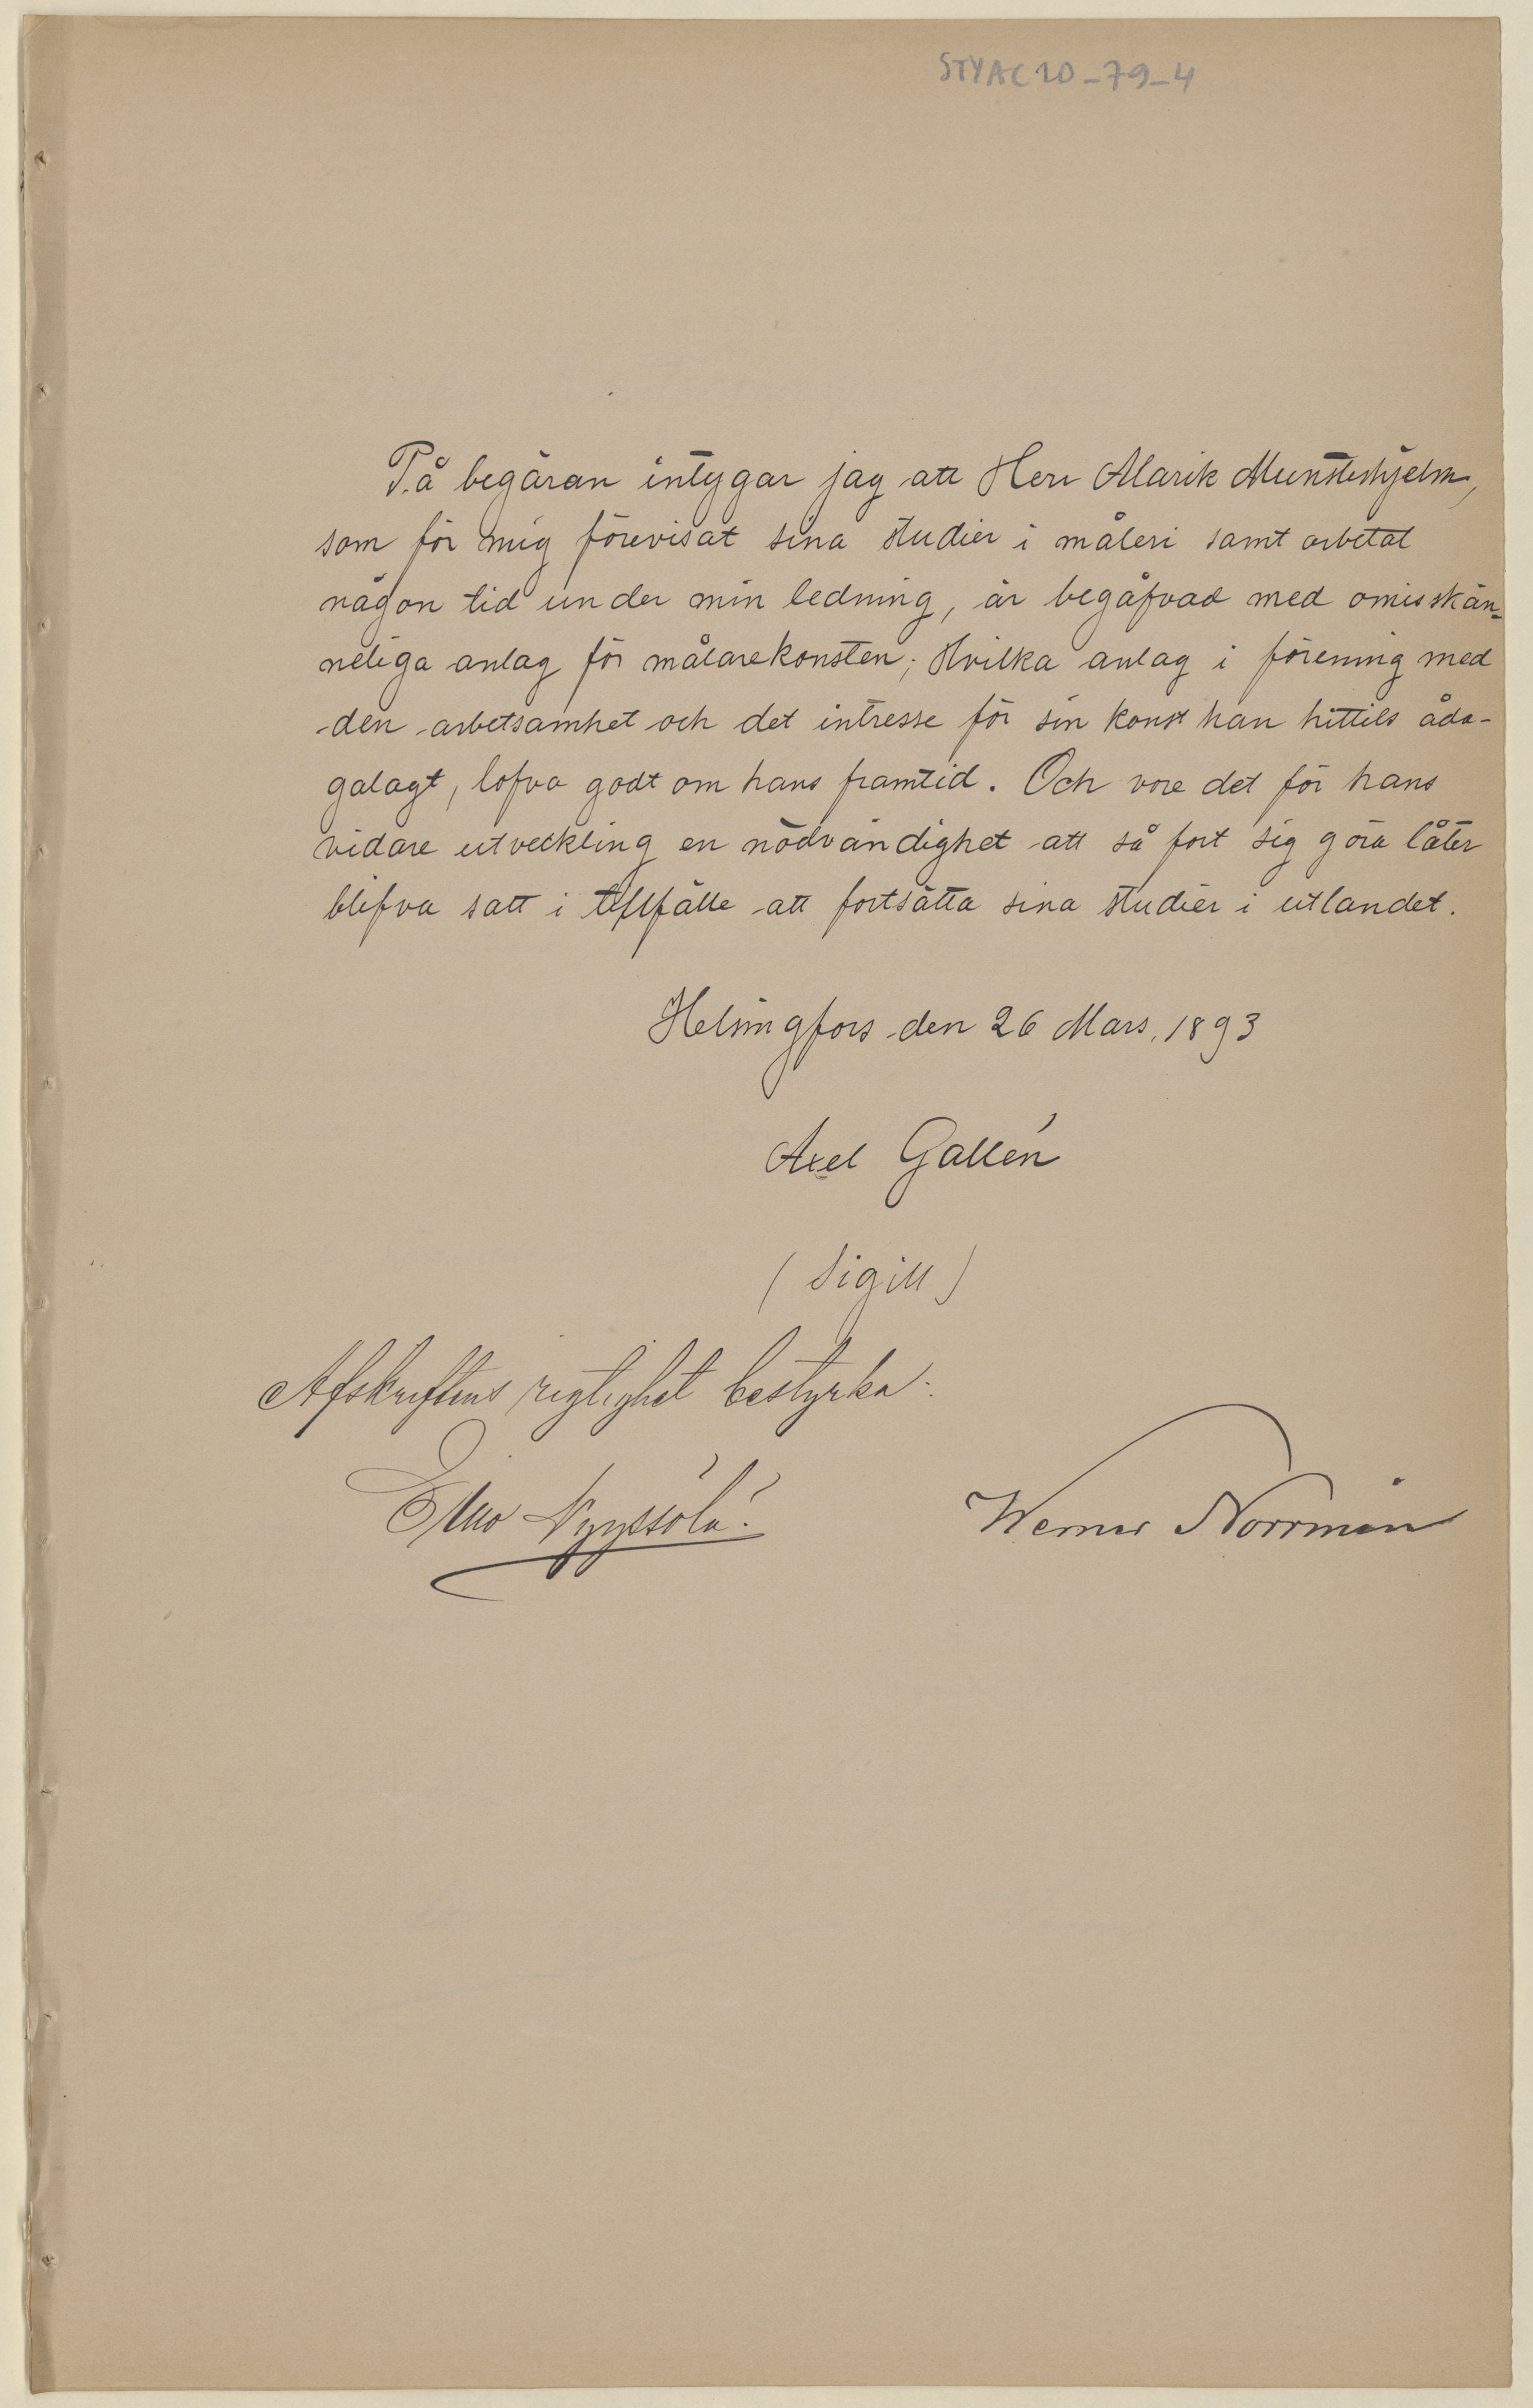 STYAC 20_79_4
På begäran intygar jag att Herr Alarik Munsterhjelm,
som för mig förevisat sina studier i måleri samt arbetat
någon tid under min ledning, är begåfvad med omisskän-
neliga anlag för målarekonsten; Hvilka anlag i förening med
den arbetsamhet och det intresse för sin konst han hittils åda-
galagt, lofva godt om hans framtid. Och vore det för hans
vidare utveckling en nödvändighet att så fort sig göra låter
blifva satt i tillfälle att fortsätta sina studier i utlandet.
Helsingfors den 26 Mars, 1893
Axel Gallén
(Sigill)
Afskriftens rigtighet bestyrka:
Nyyssölä. Werner Norrmén